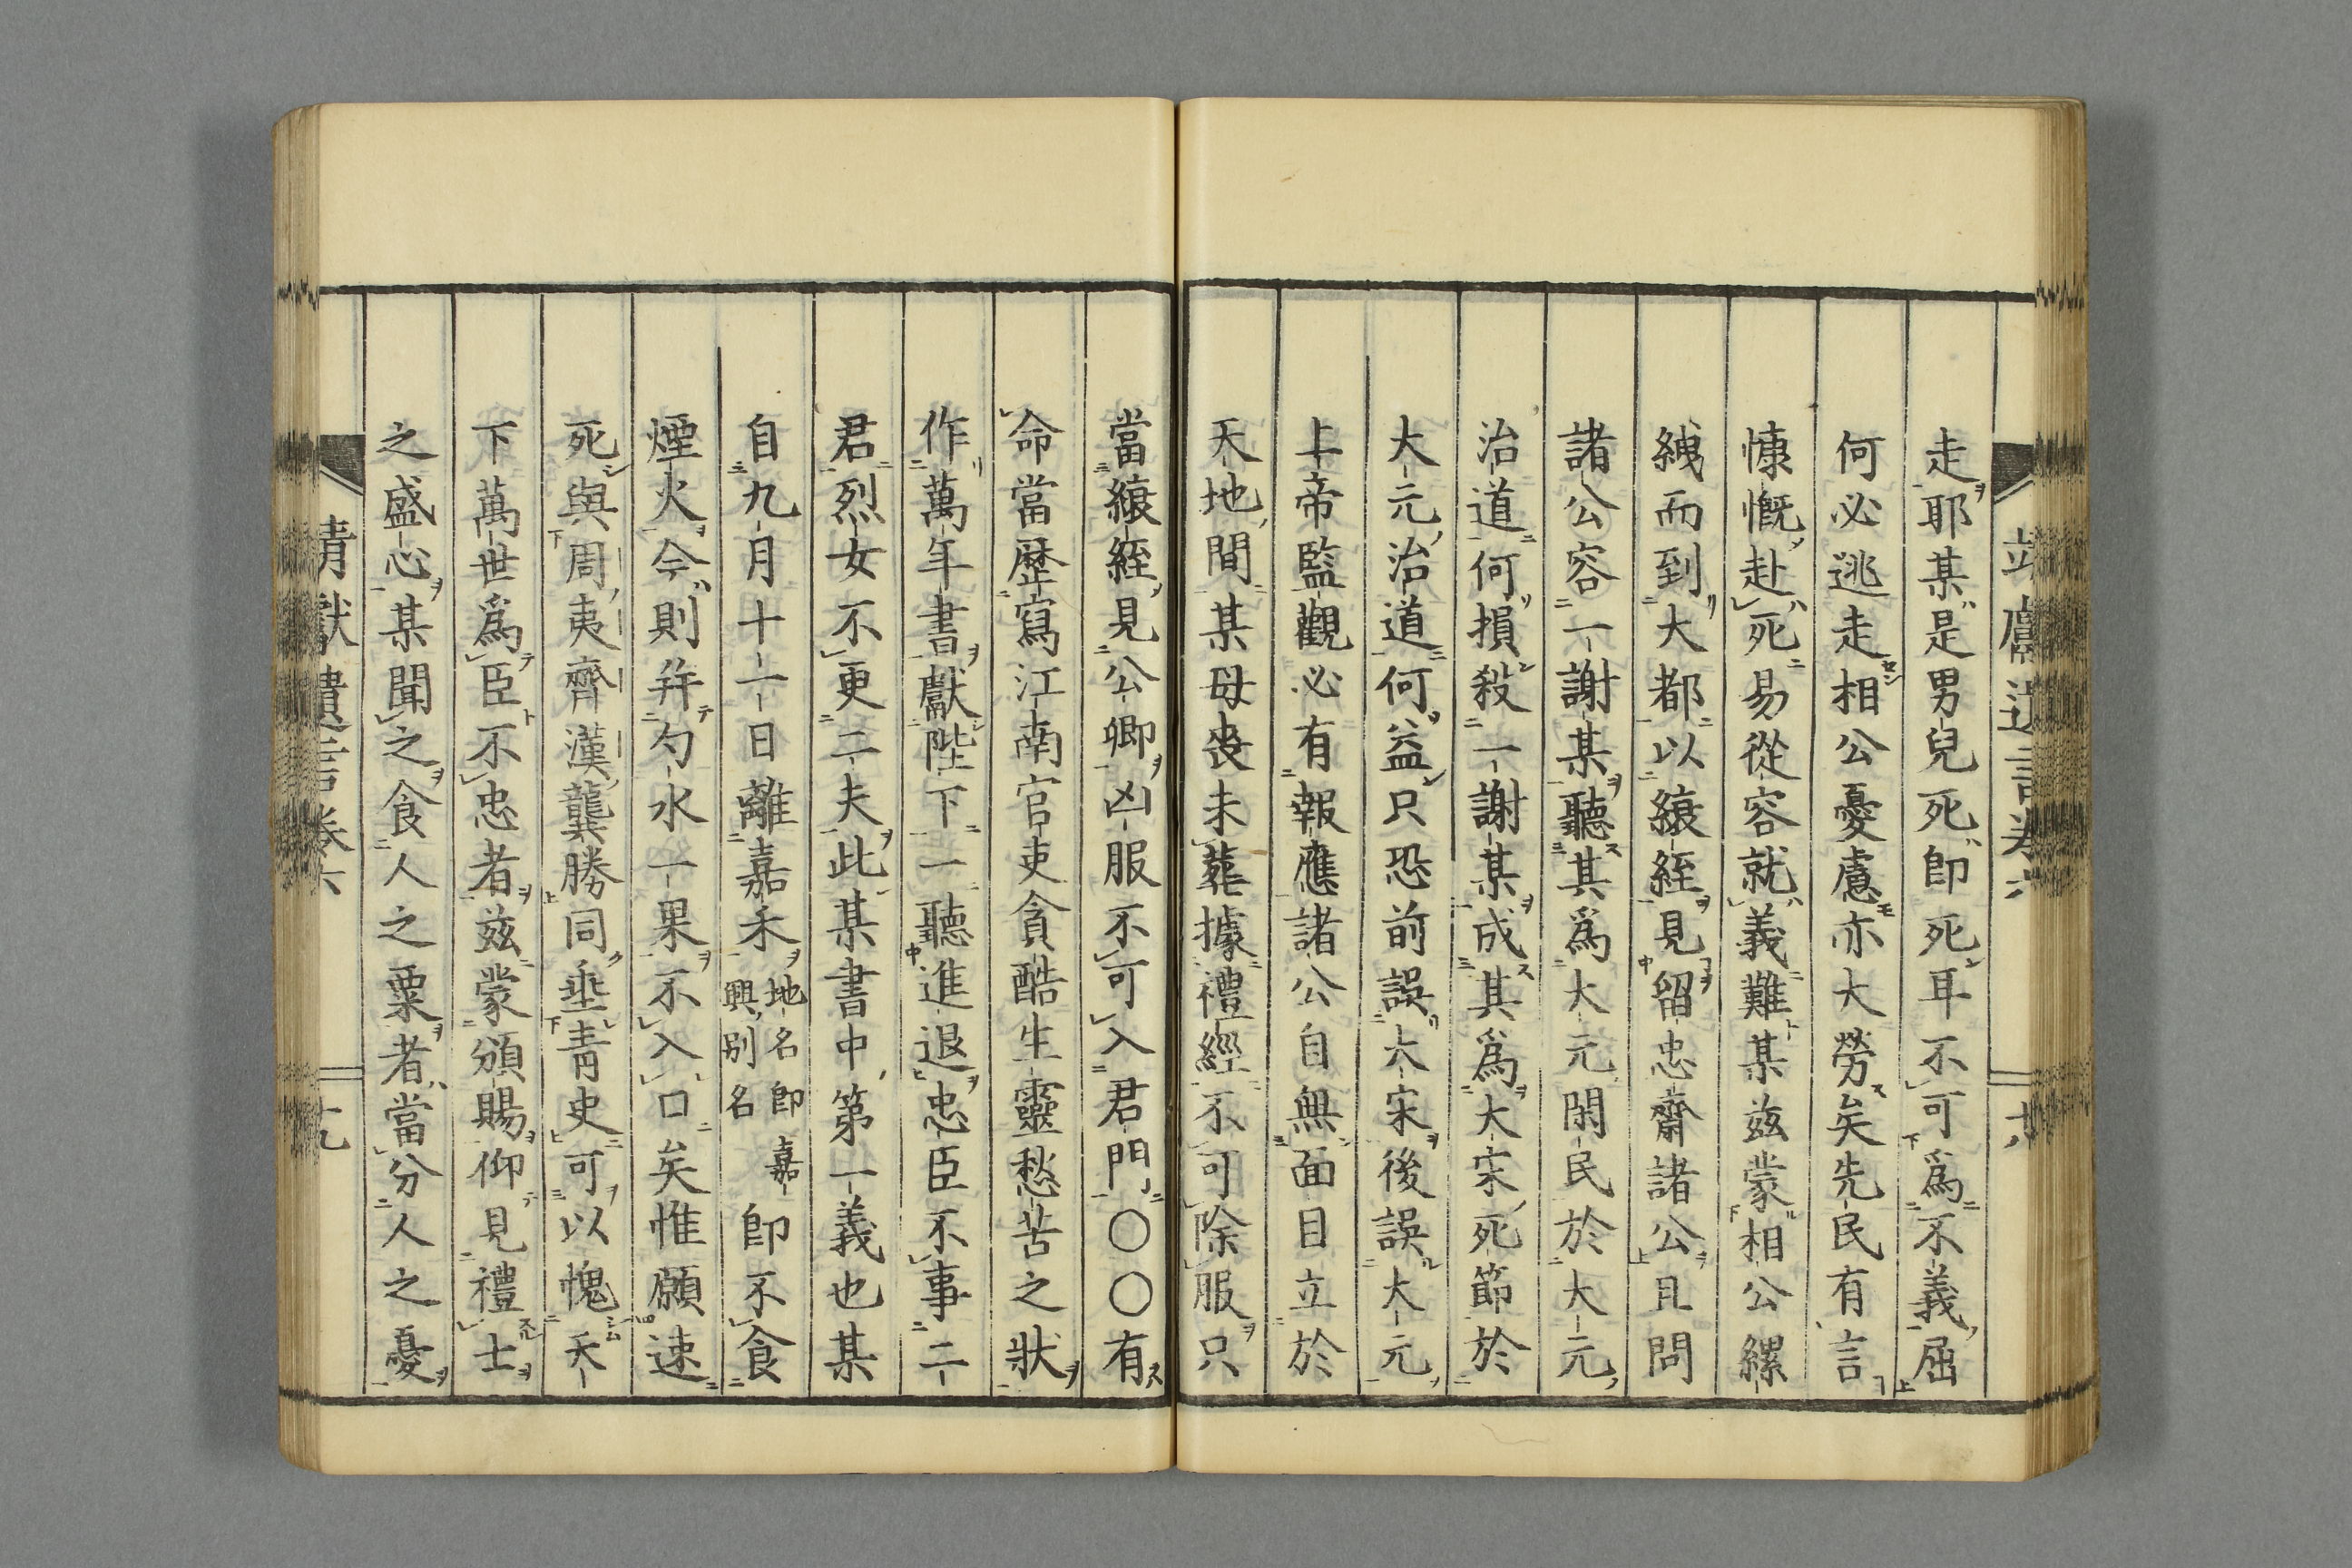 走耶某是男兒死即死耳不可爲不義屈
何必逃走相公憂慮亦大勞矣先民有言
慷慨赴死易從容就義難某兹蒙相公縲
絏而到大都以縗絰見留忠齋諸公且問
諸公容一謝某聽其爲大元閑民於大元
治道何損殺一謝某成其爲大宋死節於
大元治道何益只恐前誤大宋後誤大元
上帝監觀必有報應諸公自無面目立於
天地間某母喪未葬據禮經不可除服只
當縗絰見公卿凶服不可入君門〇〇有
命當歷寫江南官吏貪酷生靈愁苦之狀
作萬年書獻陛下一聽進退忠臣不事二
君烈女不更二夫此某書中第一義也某
自九月十一日離嘉禾地名即嘉興別名即不食
煙火今則幷勺水一果不入口矣惟願速
死與周夷齊漢龔勝同垂靑史可以愧天
下萬世爲臣不忠者兹蒙頒賜仰見禮士
之盛心某聞之食人之粟者當分人之憂